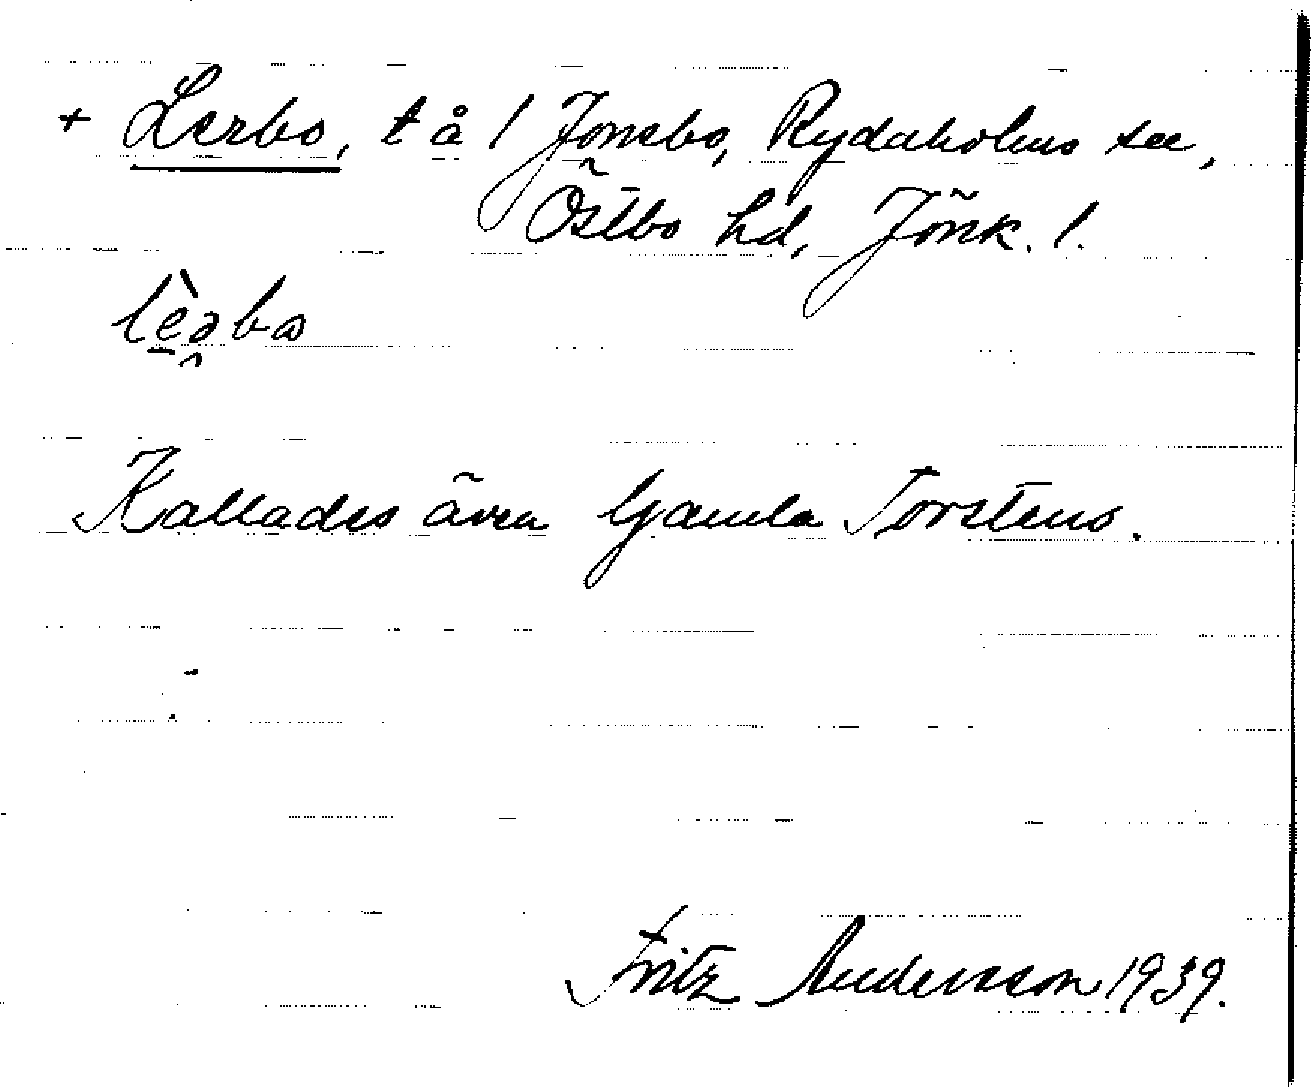 + Lerbo, t å 1 Jonsbo, Rydaholms sn,
Östbo hd, Jönk. l.
lè̠ə̯bω
Kallades även Gamla Torstens.
Fritz Andersson 1939.